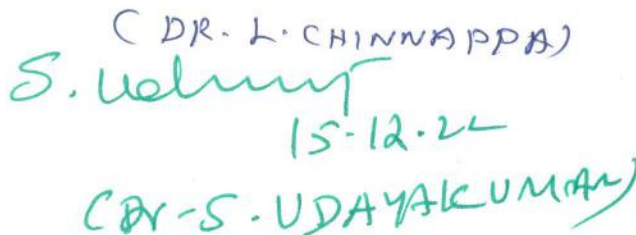 (DR. L. CHINNAPPA)
S. Uday
15.12.22
(Dr. S. UDAYAKUMAR)